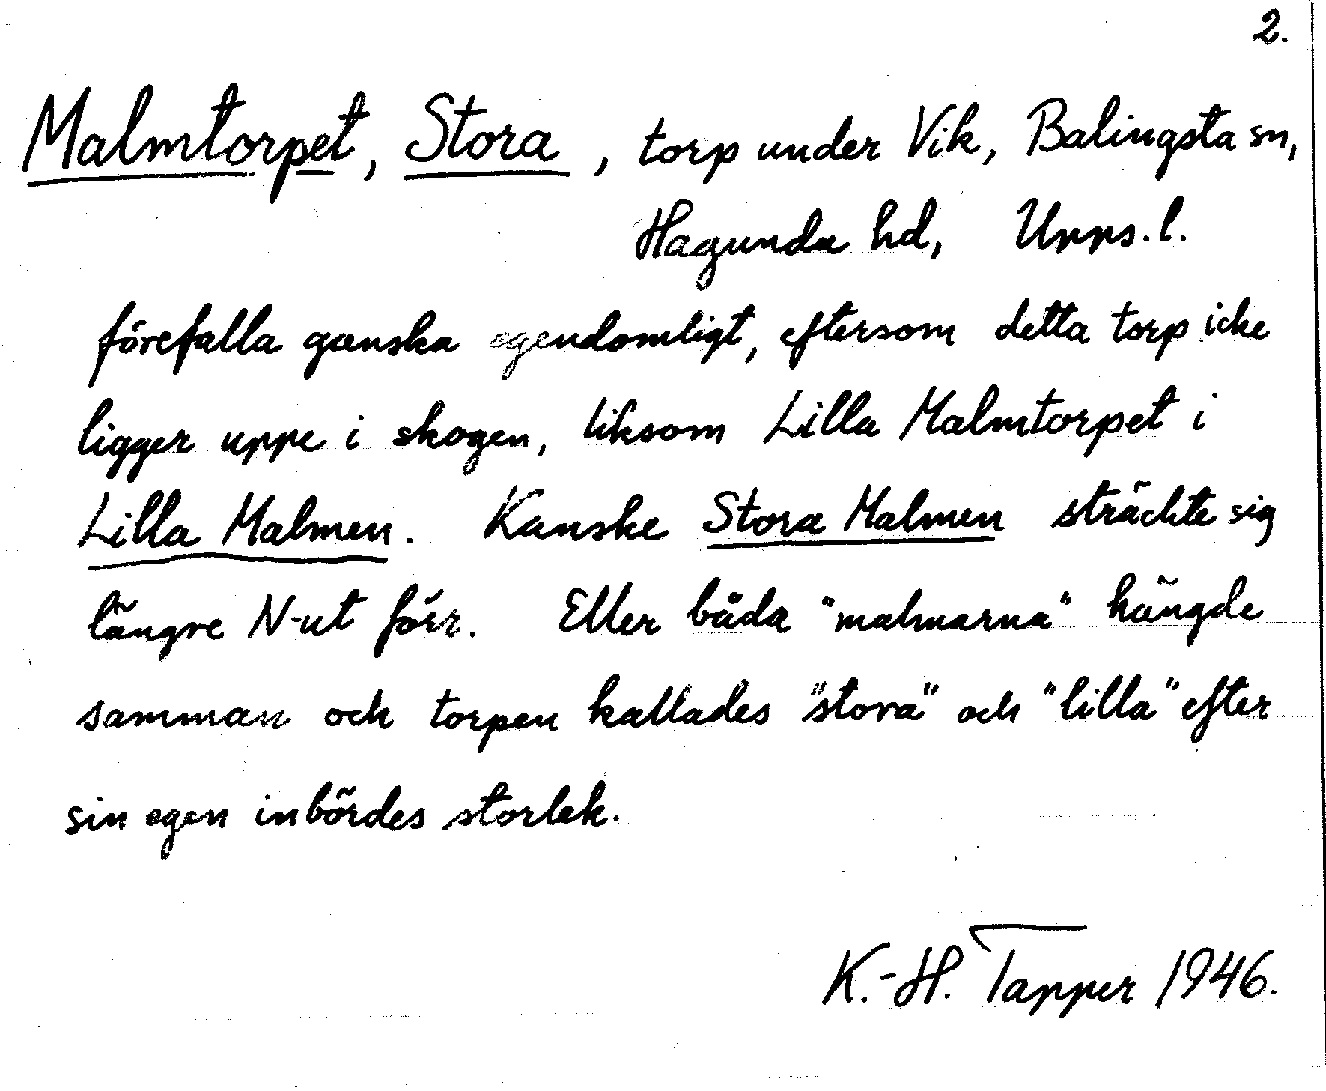 2.
Malmtorpet, Stora, torp under Vik, Balingsta sn,
Hagunda hd, Upps. l.
förefalla ganska egendomligt, eftersom detta torp icke
ligger uppe i skogen, liksom Lilla Malmtorpet i
Lilla Malmen. Kanske Stora Malmen sträckte sig
längre N-ut förr. Eller båda "malmarna" hängde
samman och torpen kallades "stora" och "lilla" efter
sin egen inbördes storlek.
K.-H. Tapper 1946.